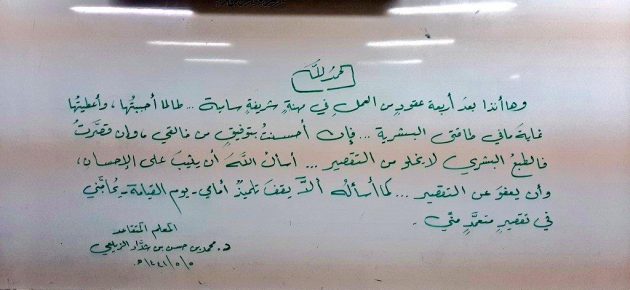 الحمدُ للَّه
وها أنذا بعدَ أربعة عقودٍ من العملِ في مهنةٍ شريفةٍ سامية ... طالما أحببتُها، وأعطيتُها
غاية ما في طاقتي البشرية ... فإن أحسنتُ بتوفيقٍ من خالقي، وإن قصَّرتُ
فالطبعُ البشري لا يخلو من التقصير ... أسألُ اللَّهَ أن يثيبَ على الإحسان،
وأن يعفوَ عن التقصير ... كما أسألُه ألَّا يقفَ تلميذٌ أمامي - يوم القيامة - يُحاجُّني
في تقصيرٍ متعمَّدٍ منّي.
المعلم المتقاعد
د. محمد بن حسن بن جدَّاد الزيلعي
١٤٤١/٥/٥هـ